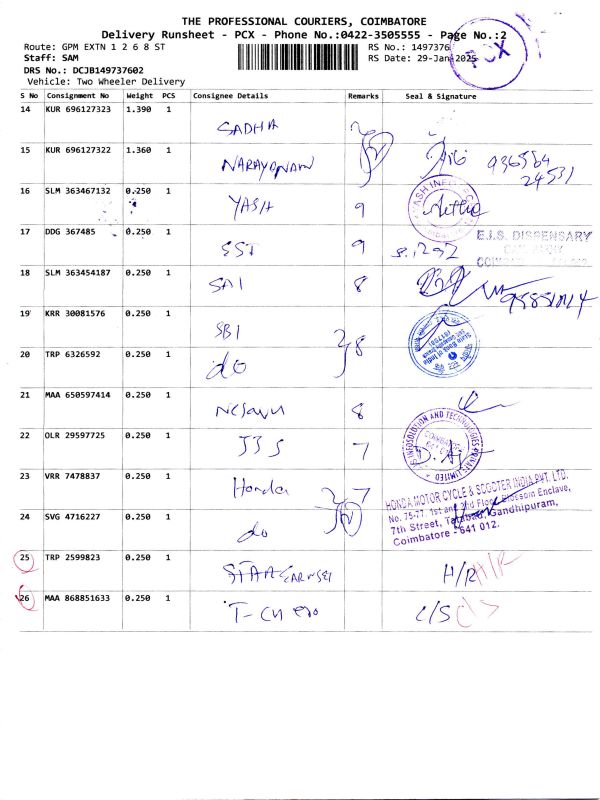 THE PROFESSIONAL COURIERS, COIMBATORE
Delivery Runsheet - PCX - Phone No.:0422-3505555 - Page No.:2
Route: GPM EXTN 1 2 6 8 ST
RS No.: 1497376
Staff: SAM
RS Date: 29-Jan-2025
DRS No.: DCJB149737602
Vehicle: Two Wheeler Delivery
PCX
S No Consignment No Weight PCS Consignee Details Remarks Seal & Signature
14 KUR 696127323 1.390 1 SADHA
15 KUR 696127322 1.360 1 NARAYANAN
16 SLM 363467132 0.250 1 YASH 9
17 DDG 367485 0.250 1 SST 9
E.I.S. DISPENSARY
18 SLM 363454187 0.250 1 SAI 8
19 KRR 30081576 0.250 1 SBI 8
State Bank of India
20 TRP 6326592 0.250 1 do
21 MAA 650597414 0.250 1 8
22 OLR 29597725 0.250 1 JJS 7
23 VRR 7478837 0.250 1 Honda 7
HONDA MOTOR CYCLE & SCOOTER INDIA PVT. LTD.
No. 75-77, 1st and 2nd Floor, Blossom Enclave,
7th Street, Tatabad, Gandhipuram,
Coimbatore - 641 012.
24 SVG 4716227 0.250 1 do
25 TRP 2599823 0.250 1 H/R H/R
26 MAA 868851633 0.250 1 C/S